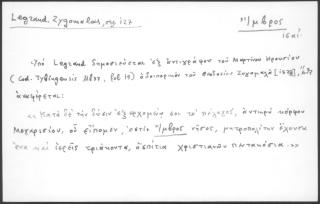 Legrand, Zygomalas, σελ 127
Ἴμβρος
ις αἰ.
Ὑπὸ Legrand δημοσιεύεται ἐξ ἀντιγράφου τοῦ Μαρτίνου Κρουσίου
(Cod. Tybingensis Mb37, fol 19) ὁδοιπορικὸν τοῦ Θεοδοσίου Ζυγομαλᾶ [1578],
ἀναφέρεται:
«Κατὰ δὲ τὴν δύσιν ἐξερχομένῳ σοι τὸ πέλαγος, ἀντικρὺ κόρφου
Μαγαρισίου, οὗ εἴπομεν, ἐστὶν Ἴμβρος νῆσος, μητροπολίτην ἔχουσα
ἕνα καὶ ἱερεῖς τριάκοντα, ὁσπίτια χριστιανῶν πεντακόσια.»